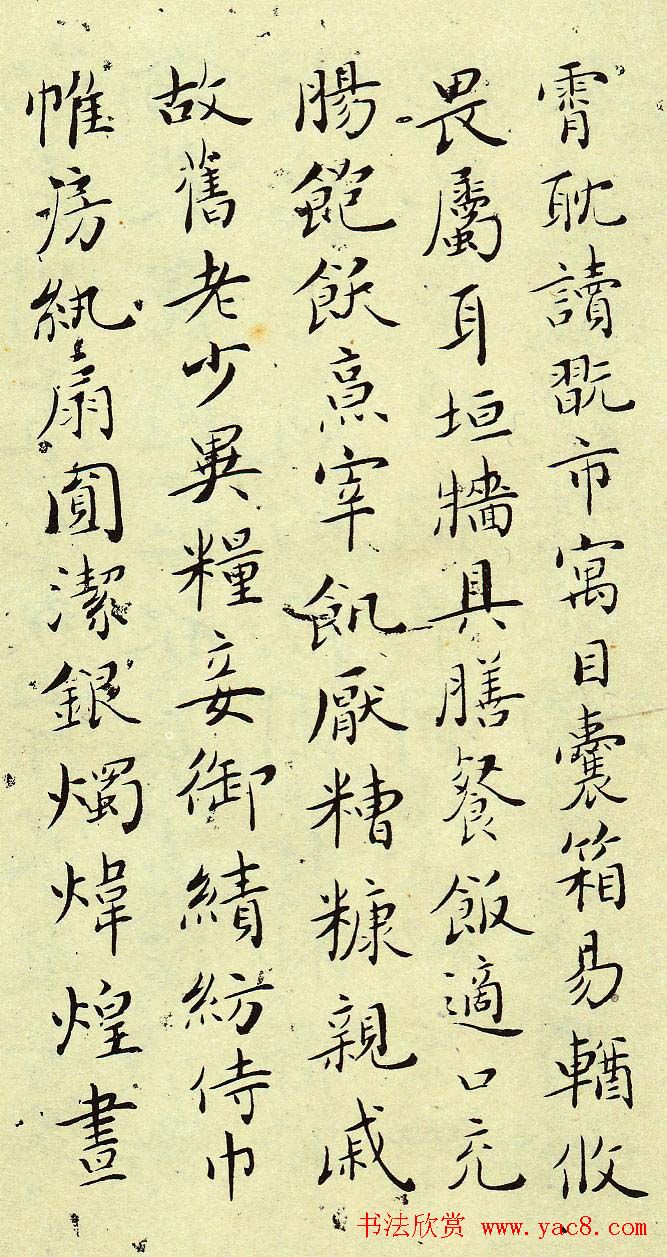 霄耽讀翫市寓目囊箱易輶攸
畏屬耳垣牆具膳餐飯適口充
腸飽飫烹宰飢厭糟糠親戚
故舊老少異糧妾御績紡侍巾
帷房紈扇圓潔銀燭煒煌晝
书法欣赏 www.yac8.com